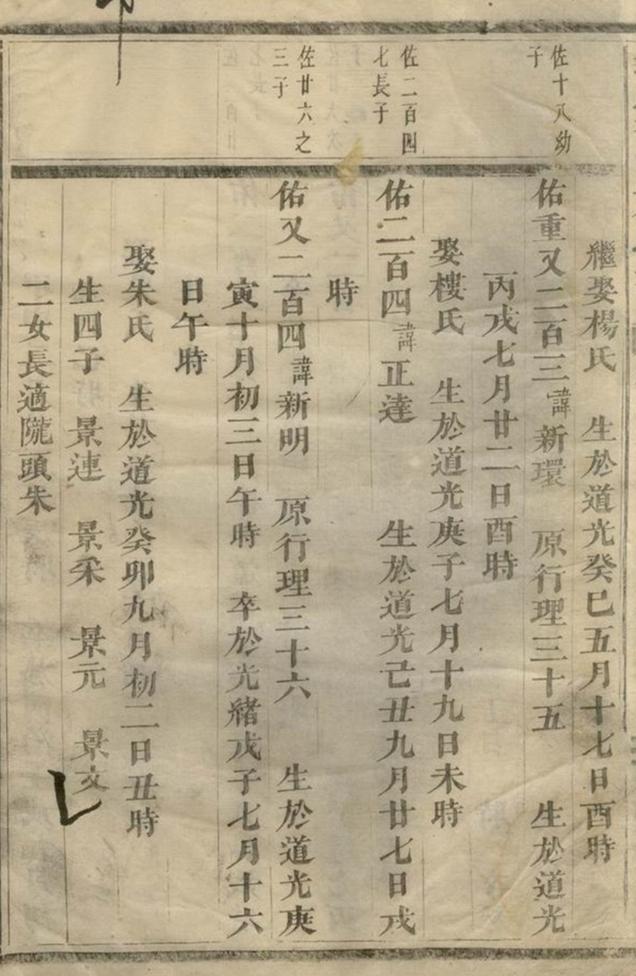 繼娶楊氏 生於道光癸巳五月十七日酉時
佐十八幼
子
佑重又二百三諱新環 原行理三十五 生於道光
丙戌七月廿二日酉時
娶樓氏 生於道光庚子七月十九日未時
佐二百四
七長子
佑二百四諱正達 生於道光己丑九月廿七日戌
時
佐廿六之
三子
佑又二百四諱新明 原行理三十六 生於道光庚
寅十月初三日午時 卒於光緒戊子七月十六
日午時
娶朱氏 生於道光癸卯九月初二日丑時
生四子 景連 景采 景元 景文
二女長適隴頭朱